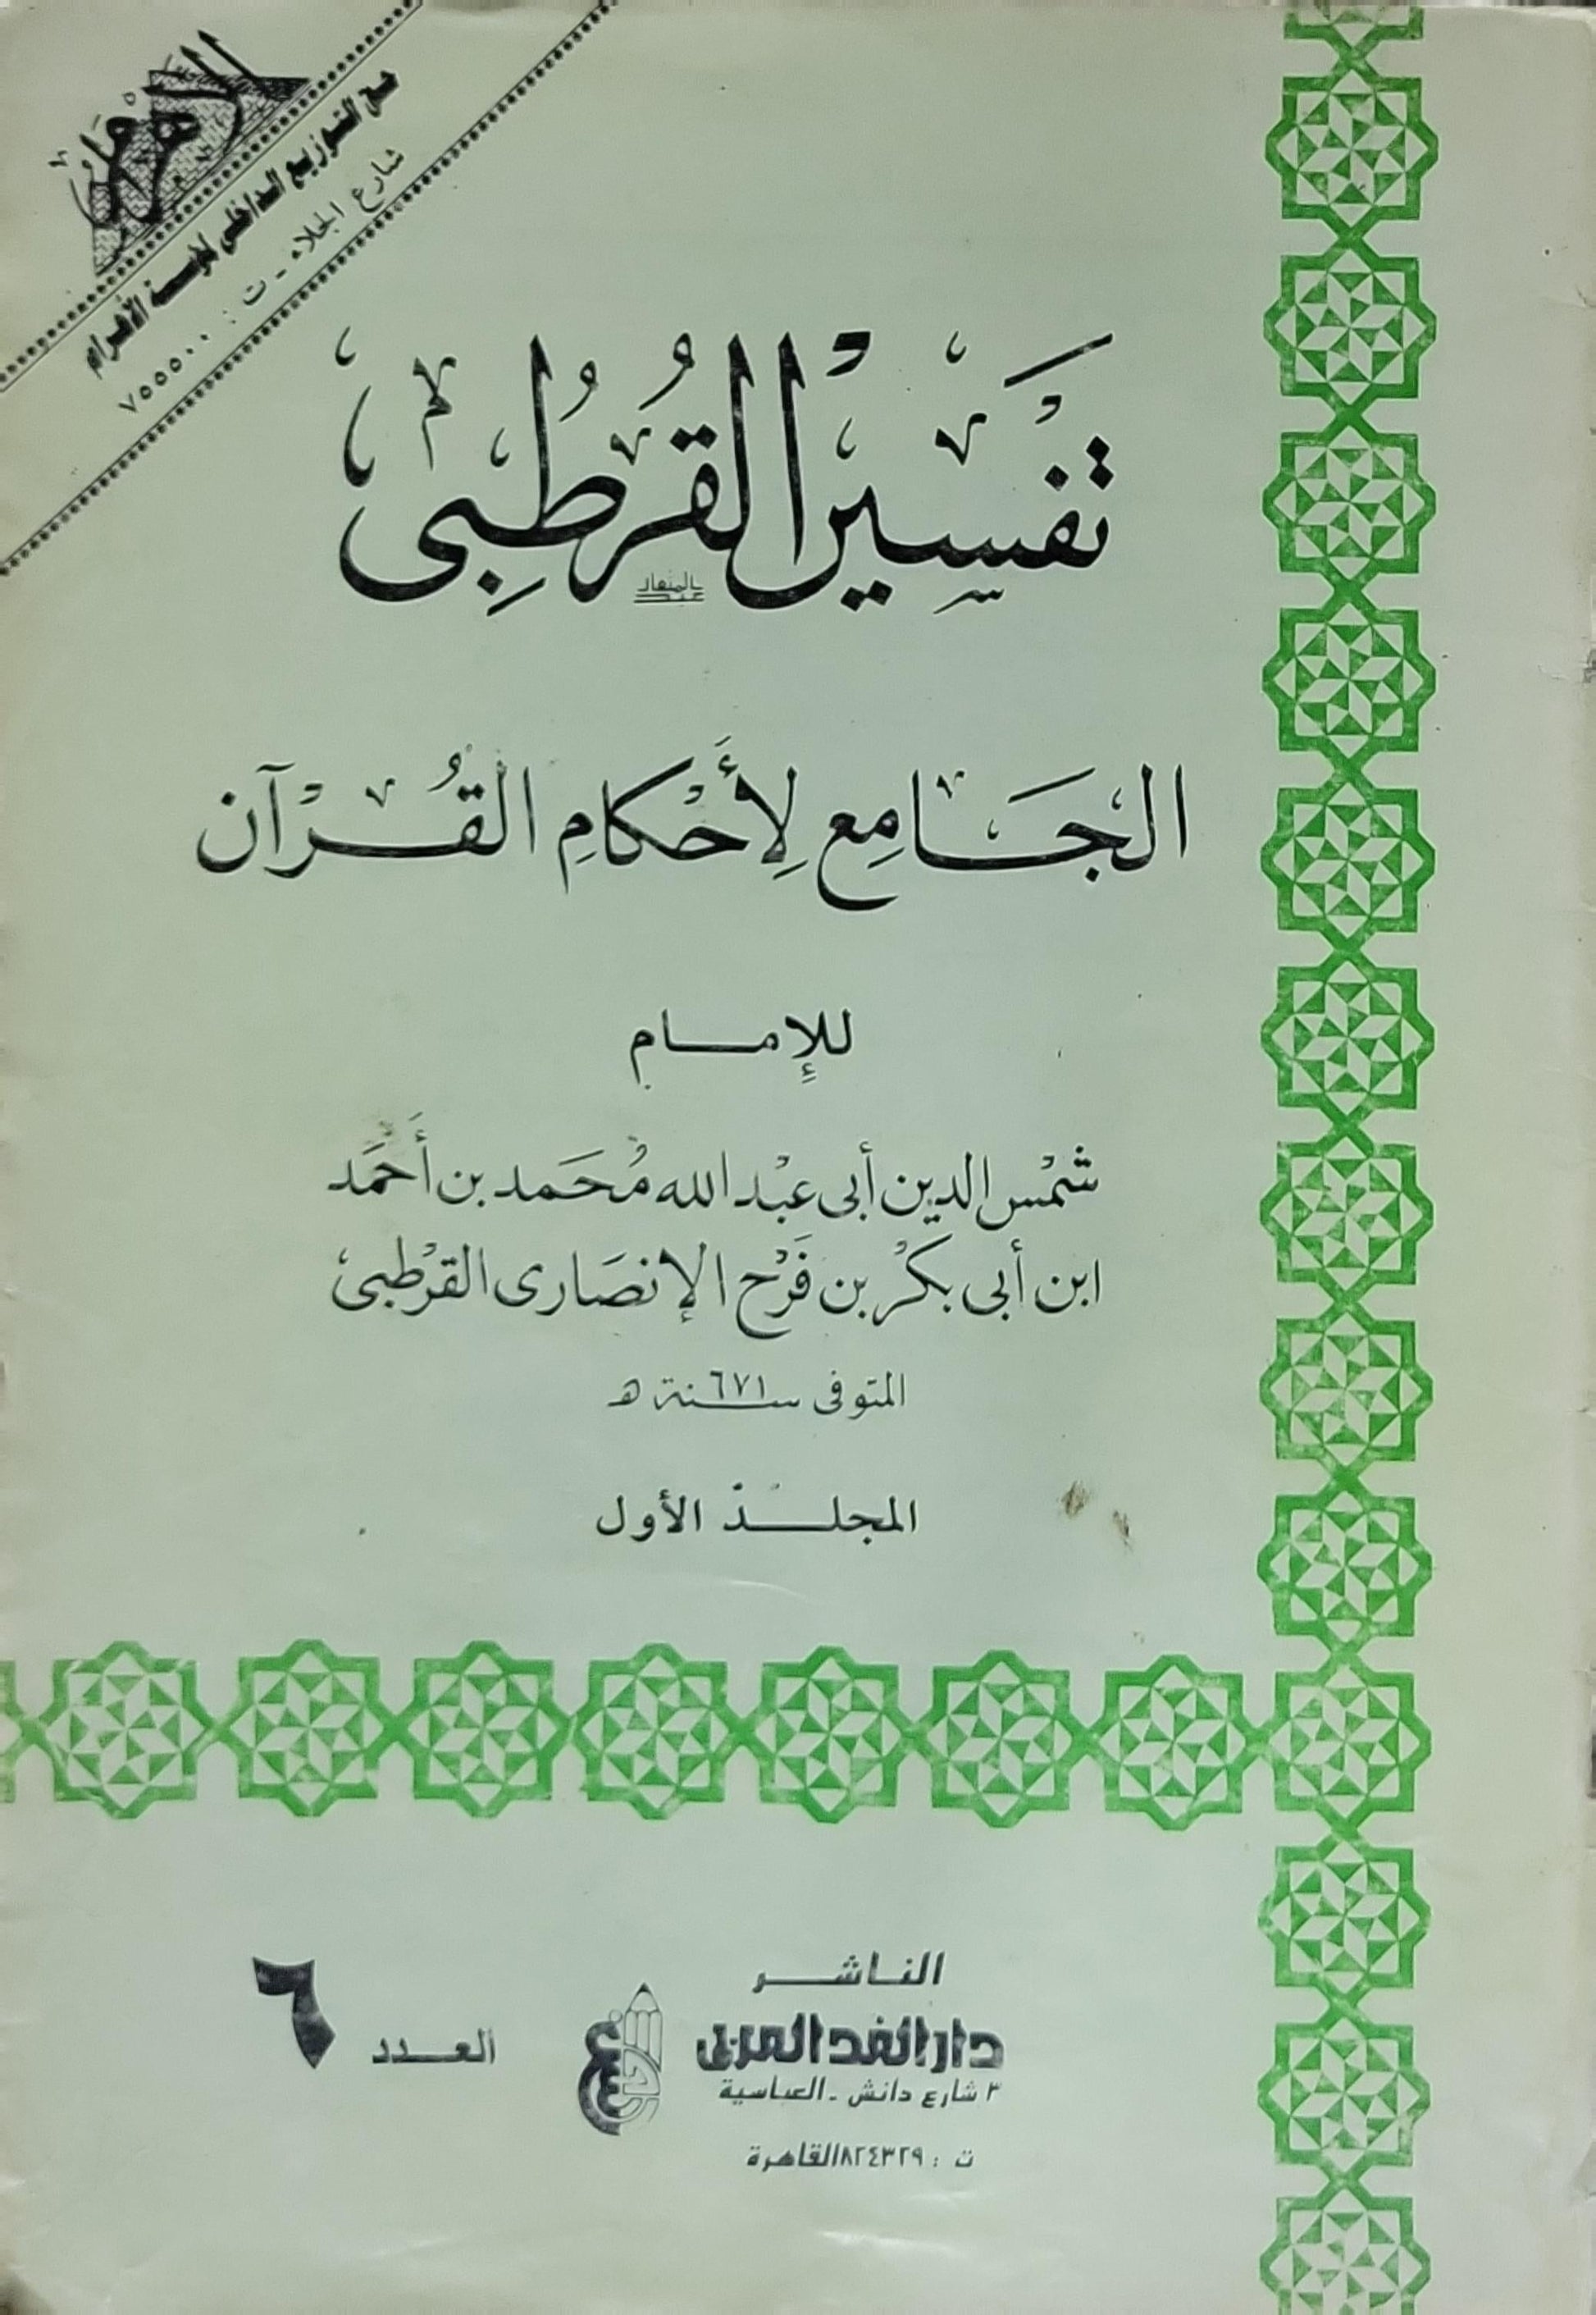 الأهرام
حق التوزيع الداخلى لمؤسسة الأهرام
شارع الجلاء - ت : ٧٥٥٥٠٠
تَفْسِيْرُ القُرْطُبِى
الجَامِع لِأَحْكَامِ القُرْآن
للإِمام
شمْس الدين أبى عبْد الله مُحَمد بن أَحمَد
ابن أبى بكْر بن فَرْح الإنصَارى القرْطبى
المتوفى سنة ٦٧١ هـ
المجلد الأول
الناشر
دار الغد العربى
٣ شارع دانش - العباسية
ت : ٨٢٤٣٢٩ القاهرة
العدد ٦